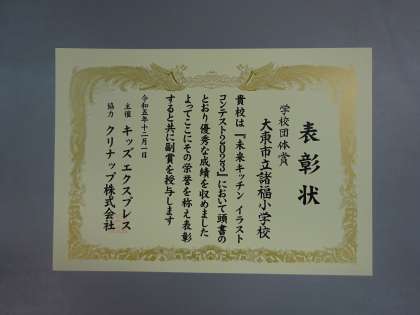 表彰状
学校団体賞
大東市立諸福小学校
貴校は『未来キッチン イラスト
コンテスト2023』において頭書の
とおり優秀な成績を収めました
よってここにその栄誉を称え表彰
すると共に副賞を授与します
令和五年十二月一日
主催 キッズエクスプレス
協力 クリナップ株式会社